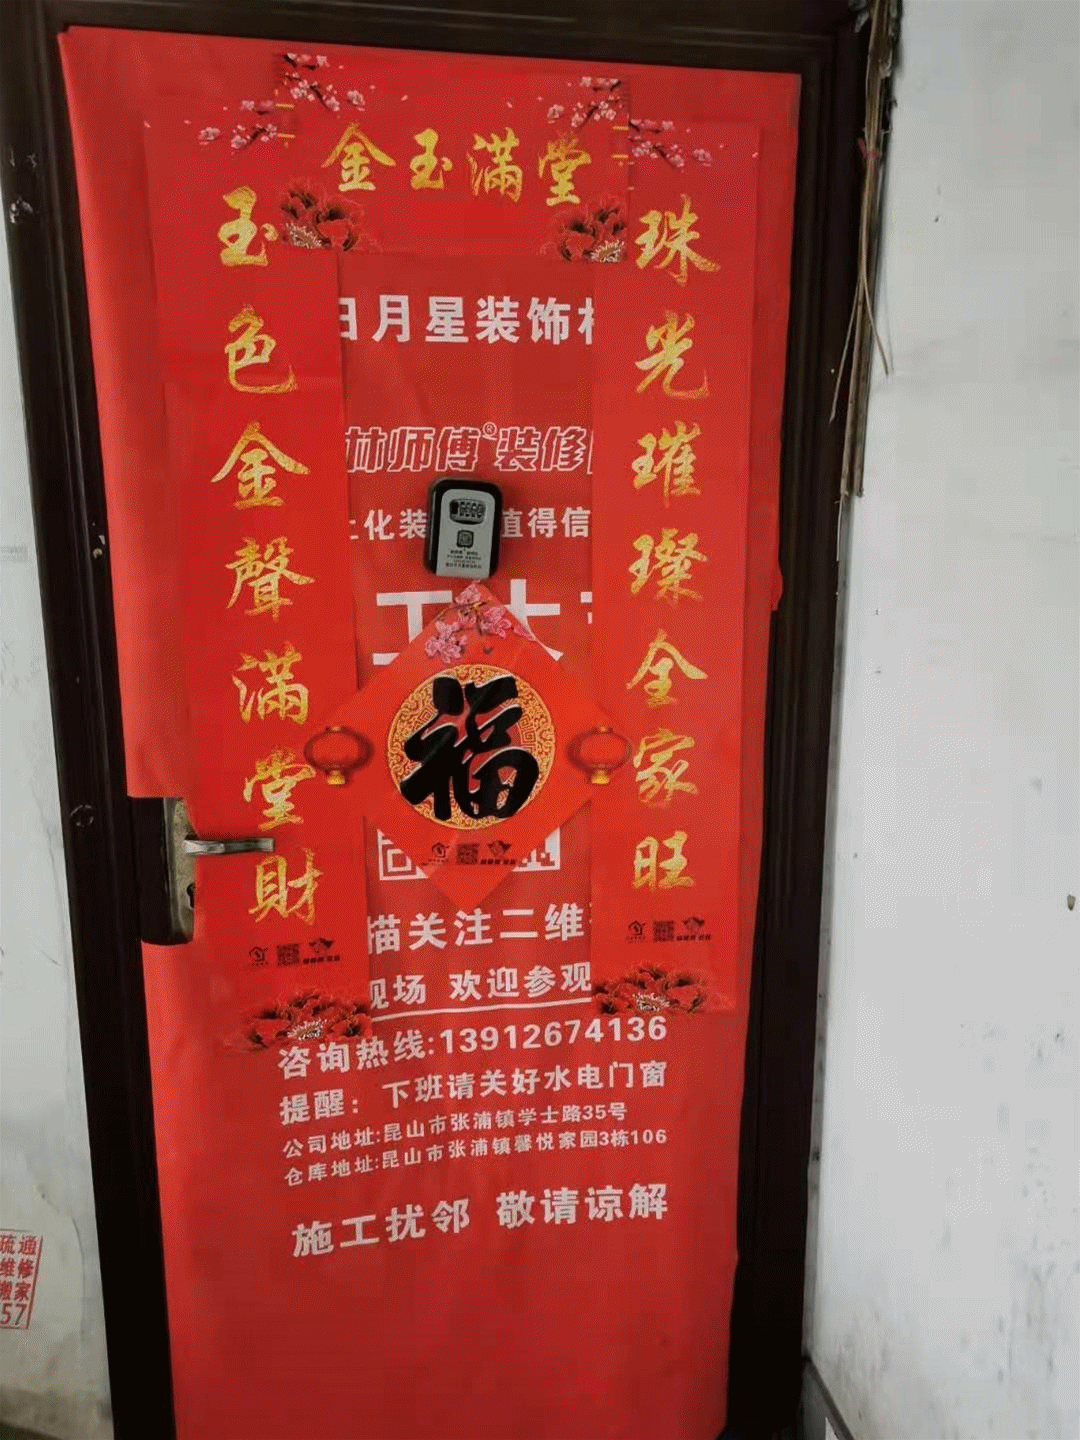 金玉满堂
珠光璀璨全家旺
玉色金聲满堂財
日月星装饰
林师傅®装修
化装
值得信
工大
福
描关注二维
现场 欢迎参观
咨询热线:13912674136
提醒：下班请关好水电门窗
公司地址:昆山市张浦镇学士路35号
仓库地址:昆山市张浦镇馨悦家园3栋106
施工扰邻 敬请谅解
疏通
维修
搬家
57